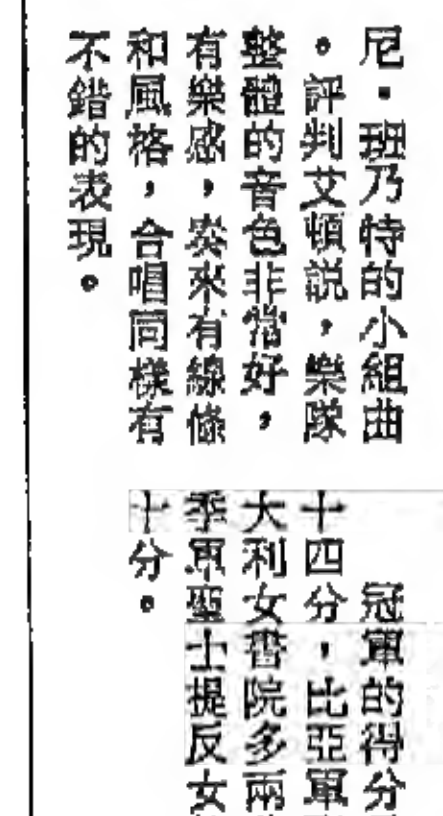 尼．班乃特的小組曲
。評判艾頓説，樂隊
整體的音色非常好，
有樂感，奏來有線條
和風格，合唱同樣有
不錯的表現。
冠軍的得分
十四分，比亞軍
大利女書院多兩
季軍聖士提反女
十分。